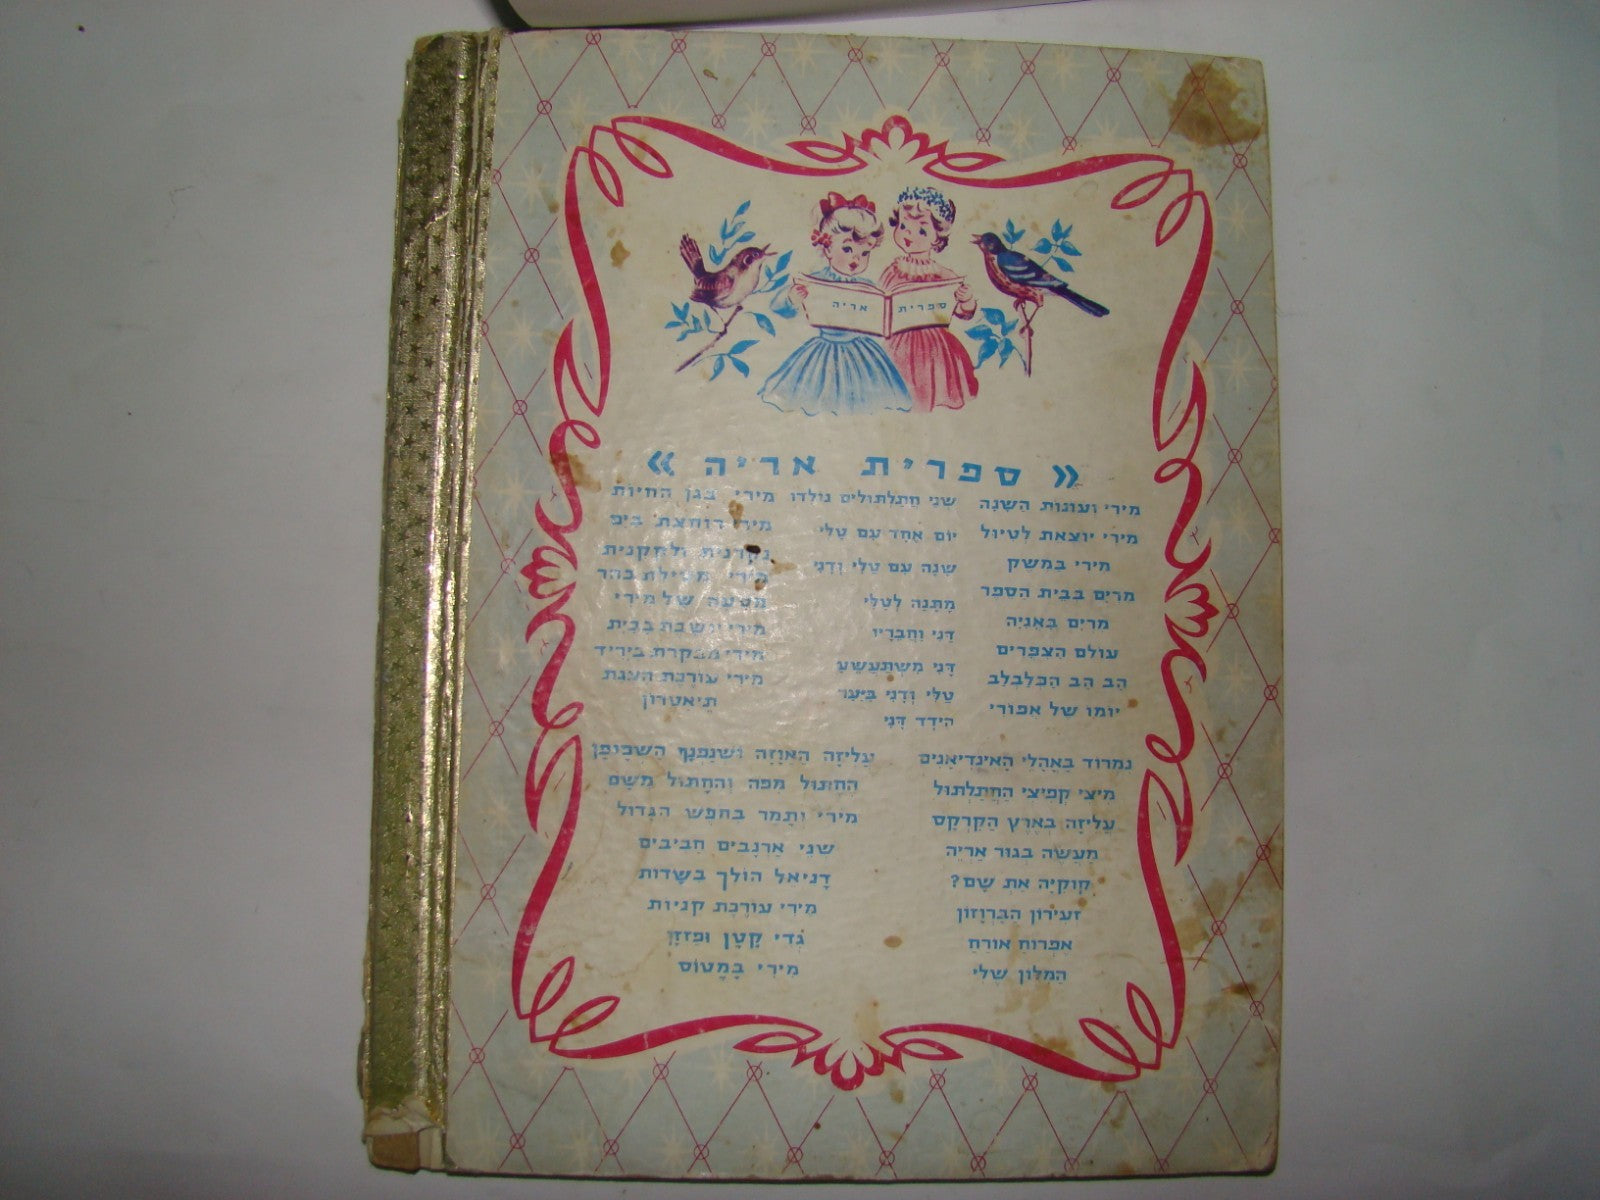 ספרית אריה
« ספרית אריה »
מירי ועונות השנה
מירי יוצאת לטיול
מירי במשק
מרים בבית הספר
מרים באניה
עולם הצפרים
הב הב הכלבלב
יומו של אפורי
שני חתלתולים נולדו
יום אחד עם טלי
שנה עם טלי ודני
מתנה לטלי
דני וחבריו
דני משתעשע
טלי ודני ביער
הידד דני
מירי בגן החיות
מירי רוחצת בים
מירי מטילת בהר
מסעה של מירי
מירי יושבת בבית
מירי מבקרת ביריד
מירי עורכת הצגת
תיאטרון
נמרוד באהלי האינדיאנים
מיצי קפיצי החתלתול
עליזה בארץ הקרקס
מעשה בגור אריה
קוקיה את שם?
זעירון הברוזון
אפרוח אורח
המלון שלי
עליזה האוזה ושנפנף השפופן
החתול מפה והחתול משם
מירי ותמר בחפש הגדול
שני ארנבים חביבים
דניאל הולך בשדות
מירי עורכת קניות
גדי קטן ופזזן
מירי במטוס